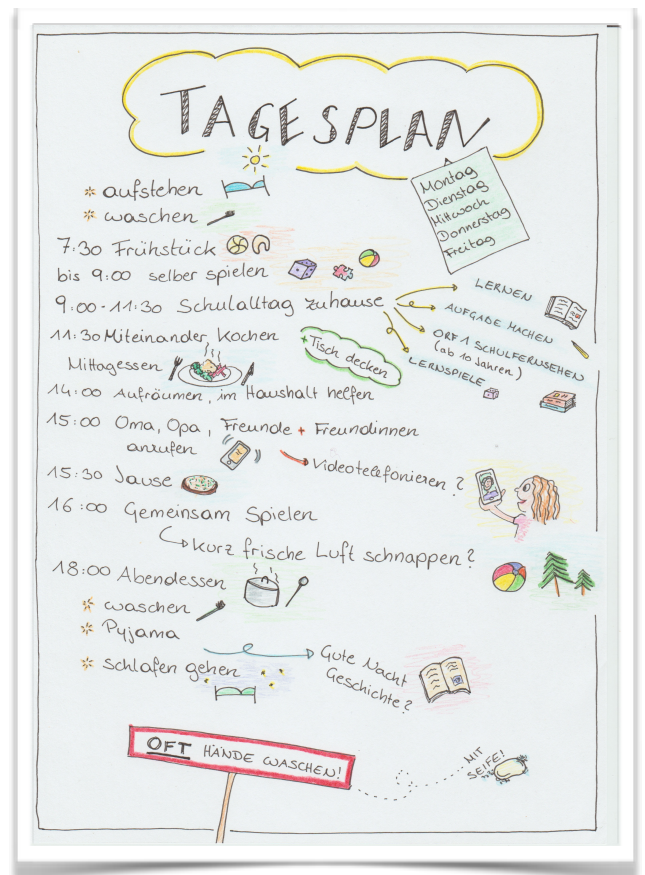 TAGESPLAN
Montag
Dienstag
Mittwoch
Donnerstag
Freitag
* aufstehen
* waschen
7:30 Frühstück
bis 9:00 selber spielen
9:00-11:30 Schulalltag zuhause
LERNEN
AUFGABE MACHEN
ORF 1 SCHULFERNSEHEN
(ab 10 Jahren)
LERNSPIELE
11:30 Miteinander Kochen
+ Tisch decken
Mittagessen
14:00 Aufräumen, im Haushalt helfen
15:00 Oma, Opa, Freunde + Freundinnen
anrufen
Videotelefonieren?
15:30 Jause
16:00 Gemeinsam Spielen
kurz frische Luft schnappen?
18:00 Abendessen
* waschen
* Pyjama
* schlafen gehen
Gute Nacht
Geschichte?
OFT HÄNDE WASCHEN!
MIT
SEIFE!